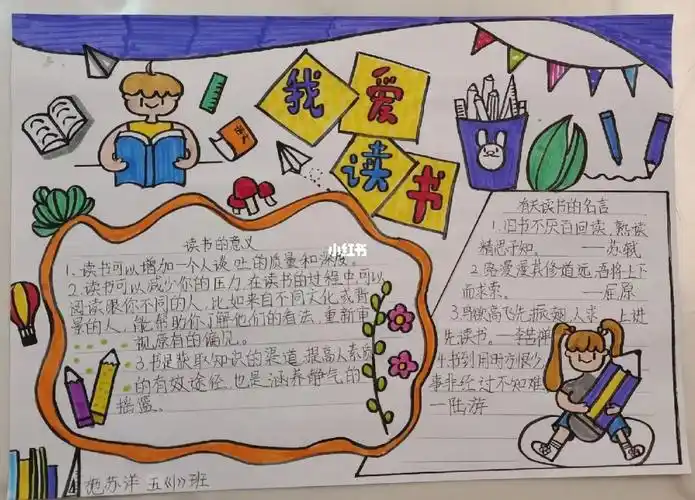 我爱
读书
语文
读书的意义
1.读书可以增加一个人谈吐的质量和深度。
2.读书可以减少你的压力,在读书的过程中,可以
阅读跟你不同的人,比如来自不同文化或背
景的人,能帮助你了解他们的看法,重新审
视原有的偏见。
3.书是获取知识的渠道,提高人素质
的有效途径,也是涵养静气的
摇篮。
小红书
有关读书的名言
1.旧书不厌百回读,熟读
精思子知。——苏轼
2.路漫漫其修道远,吾将上下
而求索。——屈原
3.鸟欲高飞先振翅,人求上进
先读书。—李苦禅
4.书到用时方恨少,
事非经过不知难
—陆游
苏洋 五《1》班